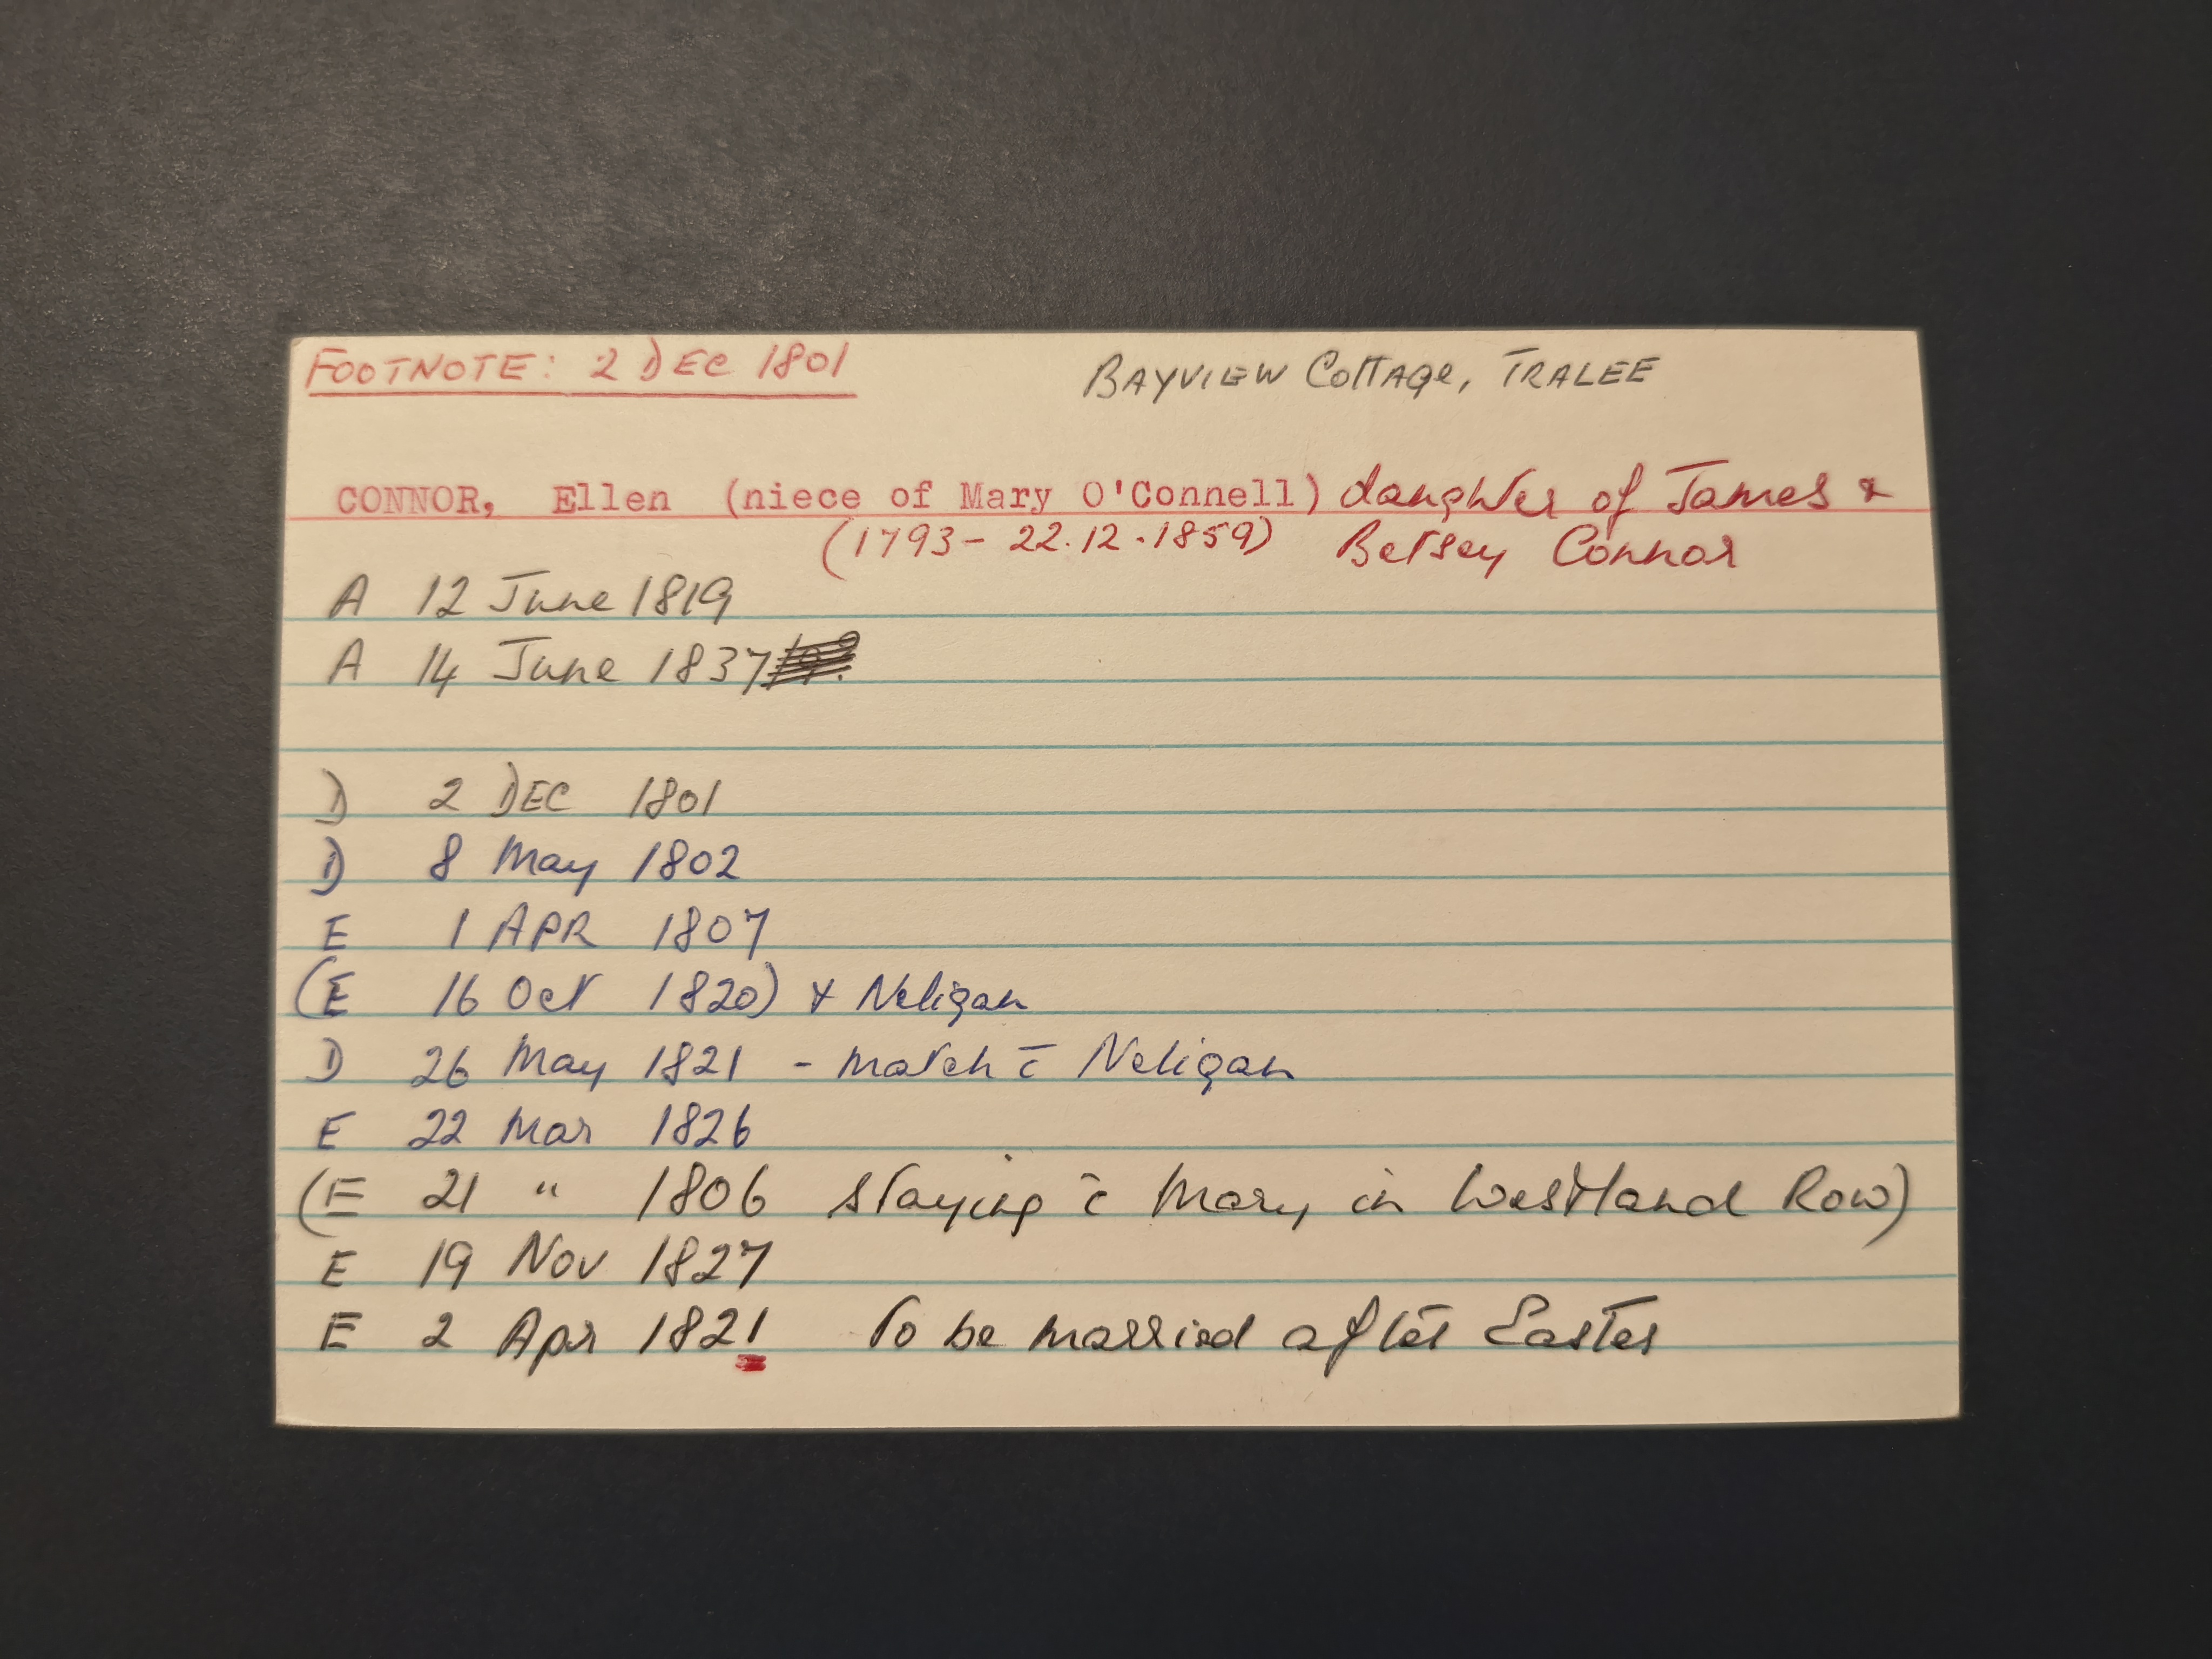 FOOTNOTE: 2 DEC 1801 BAYVIEW COTTAGE, TRALEE
CONNOR, Ellen (niece of Mary O'Connell) daughter of James &
(1793 - 22.12.1859) Betsey Connor
A 12 June 1819
A 14 June 1837
D 2 DEC 1801
D 8 May 1802
E 1 APR 1807
(E 16 Oct 1820) & Neligan
D 26 May 1821 - match c̄ Neligan
E 22 Mar 1826
(E 21 " 1806 staying c̄ Mary in Westland Row)
E 19 Nov 1827
E 2 Apr 1821 To be married after Easter